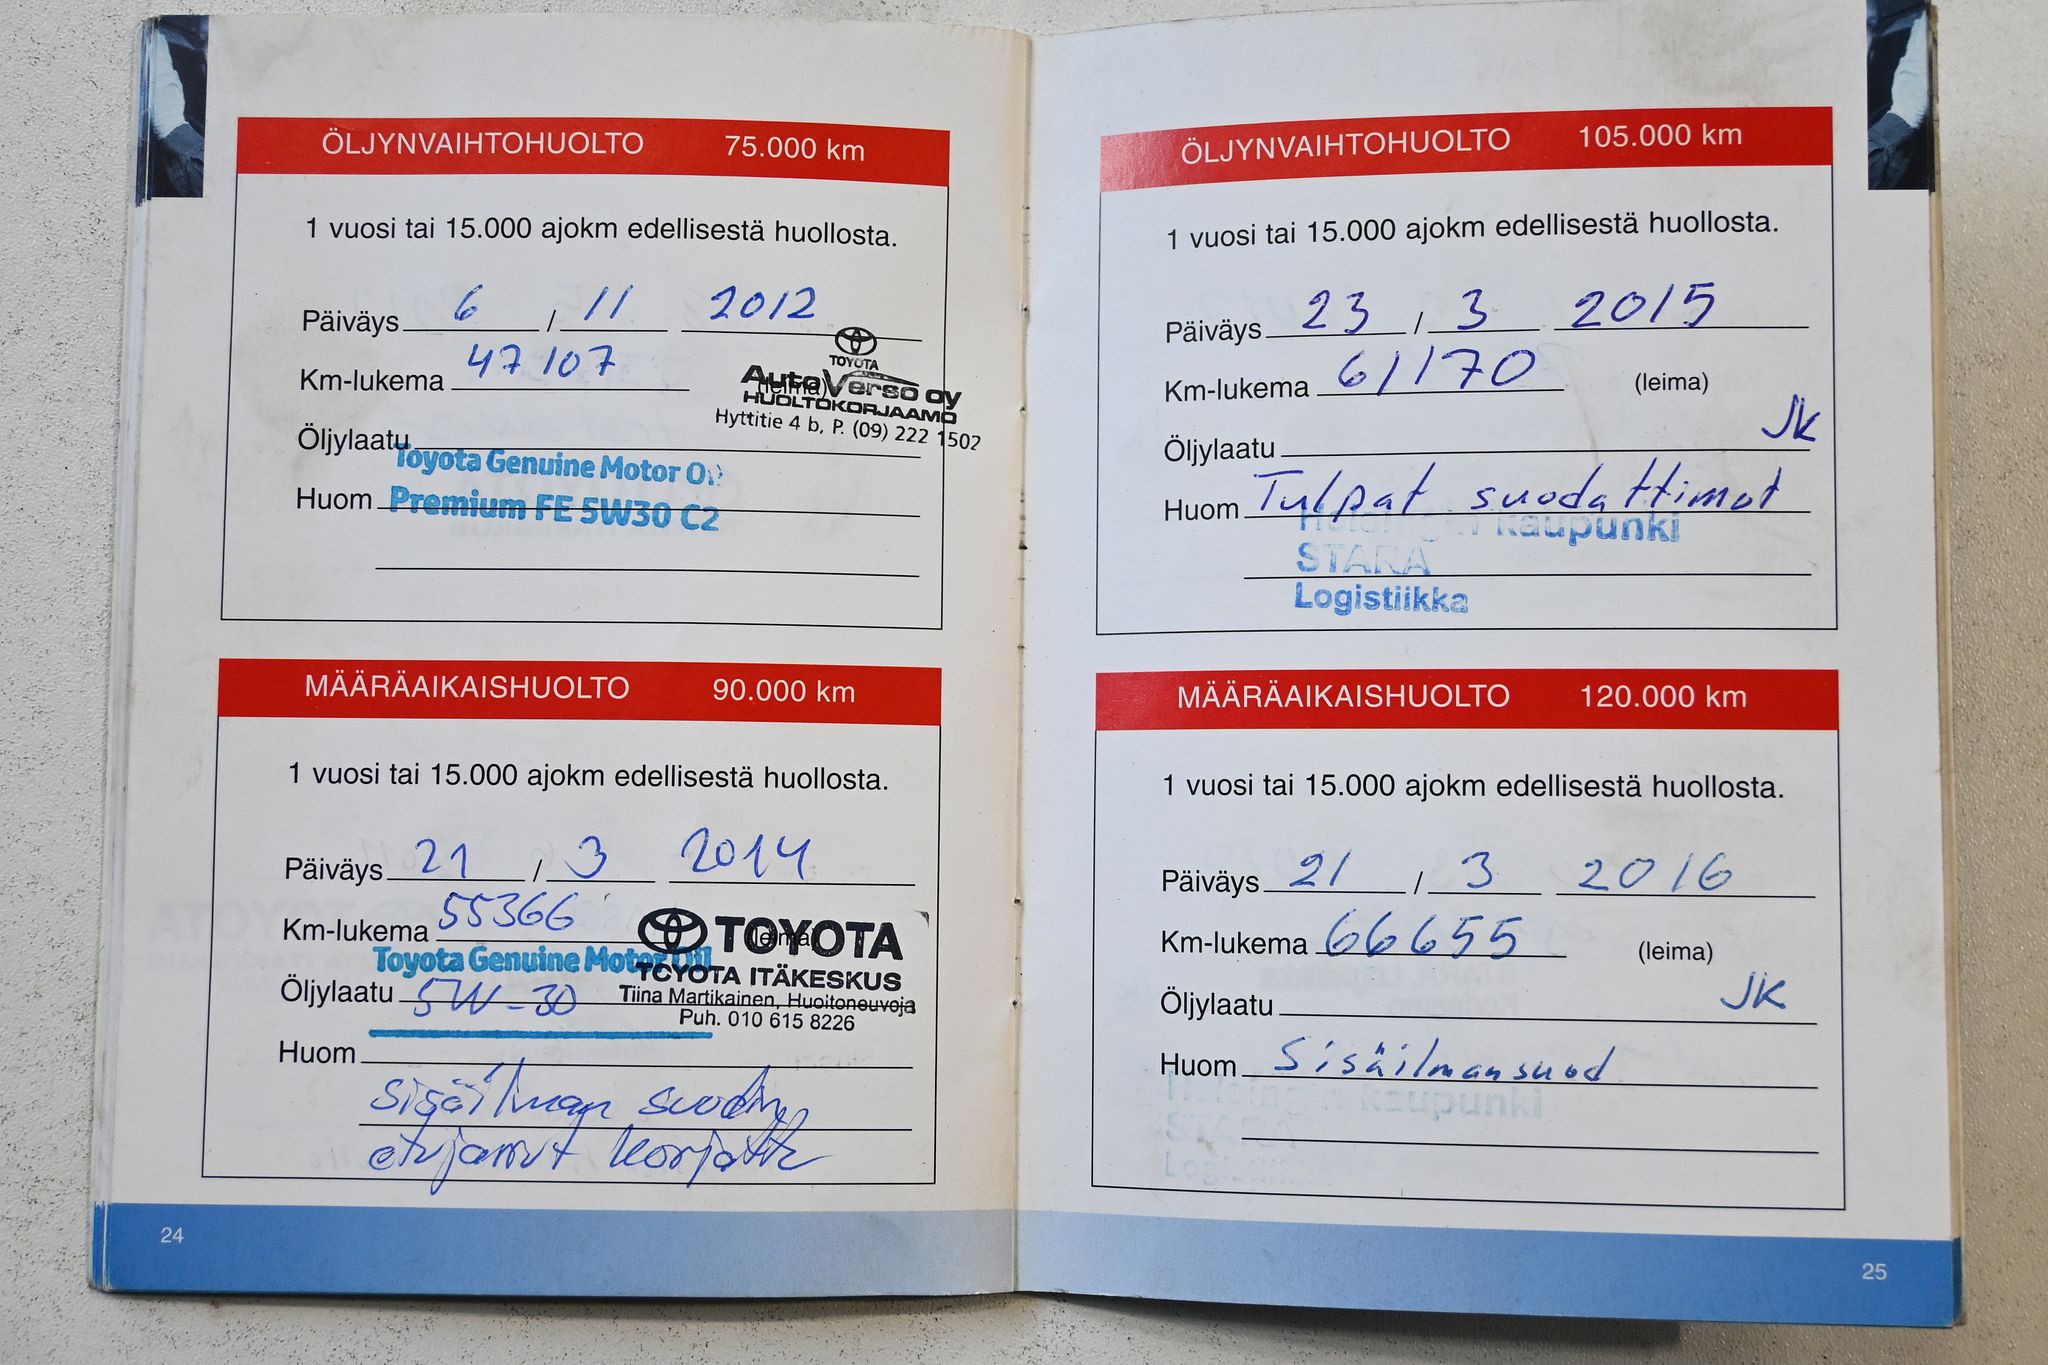 ÖLJYNVAIHTOHUOLTO 75.000 km
1 vuosi tai 15.000 ajokm edellisestä huollosta.
Päiväys 6 / 11 2012
Km-lukema 47107 (leima)
TOYOTA
AutoVerso oy
HUOLTOKORJAAMO
Hyttitie 4 b, P. (09) 222 1502
Öljylaatu
Toyota Genuine Motor Oil
Huom Premium FE 5W30 C2
MÄÄRÄAIKAISHUOLTO 90.000 km
1 vuosi tai 15.000 ajokm edellisestä huollosta.
Päiväys 21 / 3 2014
Km-lukema 55366 (leima)
TOYOTA
Toyota Genuine Motor Oil
TOYOTA ITÄKESKUS
Öljylaatu 5W-30
Tiina Martikainen, Huoltoneuvoja
Puh. 010 615 8226
Huom
sisäilman suodin
etujarrut korjattu
24
ÖLJYNVAIHTOHUOLTO 105.000 km
1 vuosi tai 15.000 ajokm edellisestä huollosta.
Päiväys 23 / 3 2015
Km-lukema 61170 (leima)
JK
Öljylaatu
Huom Tulpat suodattimet
Helsingin kaupunki
STARA
Logistiikka
MÄÄRÄAIKAISHUOLTO 120.000 km
1 vuosi tai 15.000 ajokm edellisestä huollosta.
Päiväys 21 / 3 2016
Km-lukema 66655 (leima)
Öljylaatu JK
Huom Sisäilmansuod
Helsingin kaupunki
STARA
Logistiikka
25